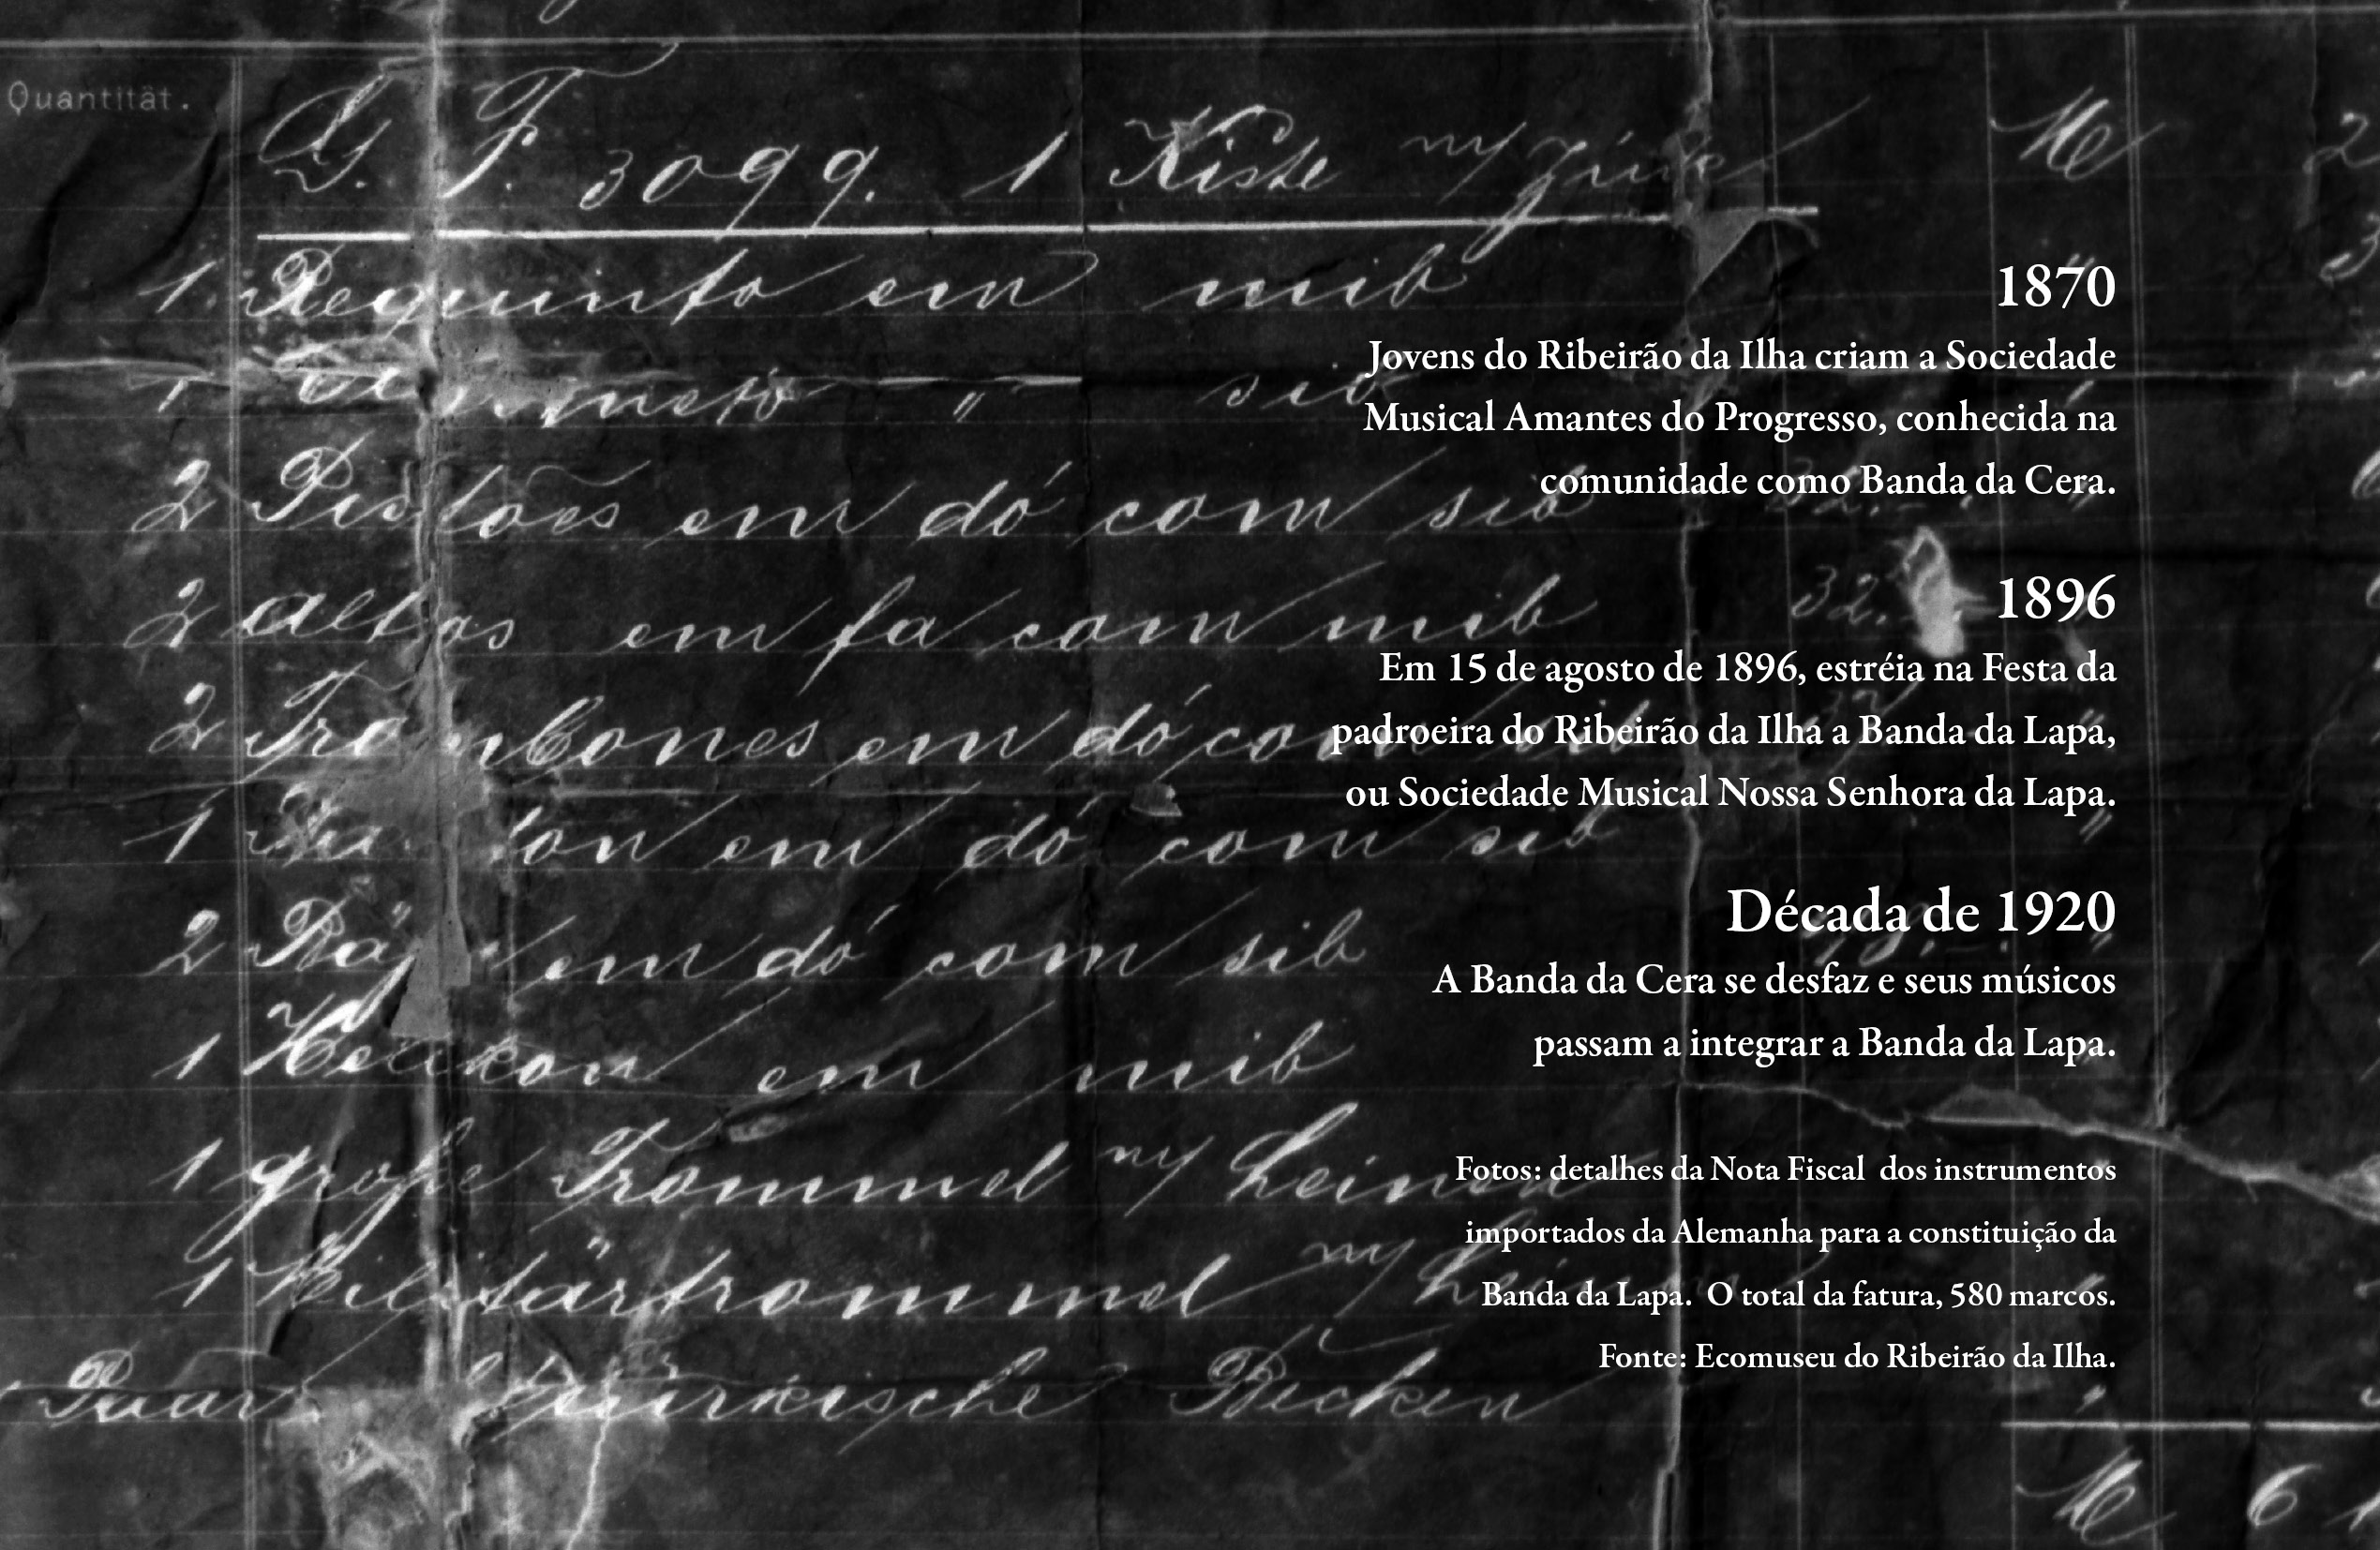 Quantität.
G. F. 3099. 1 Kiste
1 Requinto em mib
1 " sib
2 Pistões em dó com sib
2 altos em fa com mib
32.
2 Trombones em dó
1 em dó com sib
2 em dó com sib
1 Helikon em mib
1 große Trommel
1 Militärtrommel
Paar türkische Becken
M 6
1870
Jovens do Ribeirão da Ilha criam a Sociedade
Musical Amantes do Progresso, conhecida na
comunidade como Banda da Cera.
1896
Em 15 de agosto de 1896, estréia na Festa da
padroeira do Ribeirão da Ilha a Banda da Lapa,
ou Sociedade Musical Nossa Senhora da Lapa.
Década de 1920
A Banda da Cera se desfaz e seus músicos
passam a integrar a Banda da Lapa.
Fotos: detalhes da Nota Fiscal dos instrumentos
importados da Alemanha para a constituição da
Banda da Lapa. O total da fatura, 580 marcos.
Fonte: Ecomuseu do Ribeirão da Ilha.